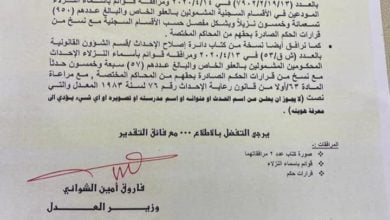 العدد (٧٩٠٢/٢/١٩/١٣) في ٢٠٢٠/٤/١٣ ومرفقاته قوائم باسماء النزلاء
المودعين في الاقسام السجنية المشمولين بالعفو الخاص والبالغ عددهم (٩٥٠)
تسعمائة وخمسون نزيلاً وبشكل مفصل حسب الأقسام السجنية مع نسخ من
قرارات الحكم الصادرة بحقهم من المحاكم المختصة.
كما نرافق أيضا نسخة من كتاب دائرة إصلاح الإحداث /قسم الشؤون القانونية
بالعدد (ش ق/٥٣) في ٢٠٢٠/٤/١٣ ومرافقاته قوائم باسماء النزلاء الإحداث
المحكومين المشمولين بالعفو الخاص والبالغ عددهم (٥٧) سبعة وخمسون حدثاً
مع نسخ من قرارات الحكم الصادرة بحقهم من المحاكم المختصة، مع مراعاة
المادة ٦٣/اولا من قانون رعاية الإحداث رقم ٧٦ لسنة ١٩٨٣ المعدل والتي
نصت (لا يجوز ان يعلن عن اسم الحدث او عنوانه او اسم مدرسته او تصويره او اي شيء يؤدي الى
معرفة هويته)
يرجى التفضل بالاطلاع ... مع فائق التقدير
المرافقات :
صورة كتاب عدد ٢ مرافقاتهما
قوائم باسماء النزلاء
قرارات حكم
فاروق أمين الشواني
وزير العدل